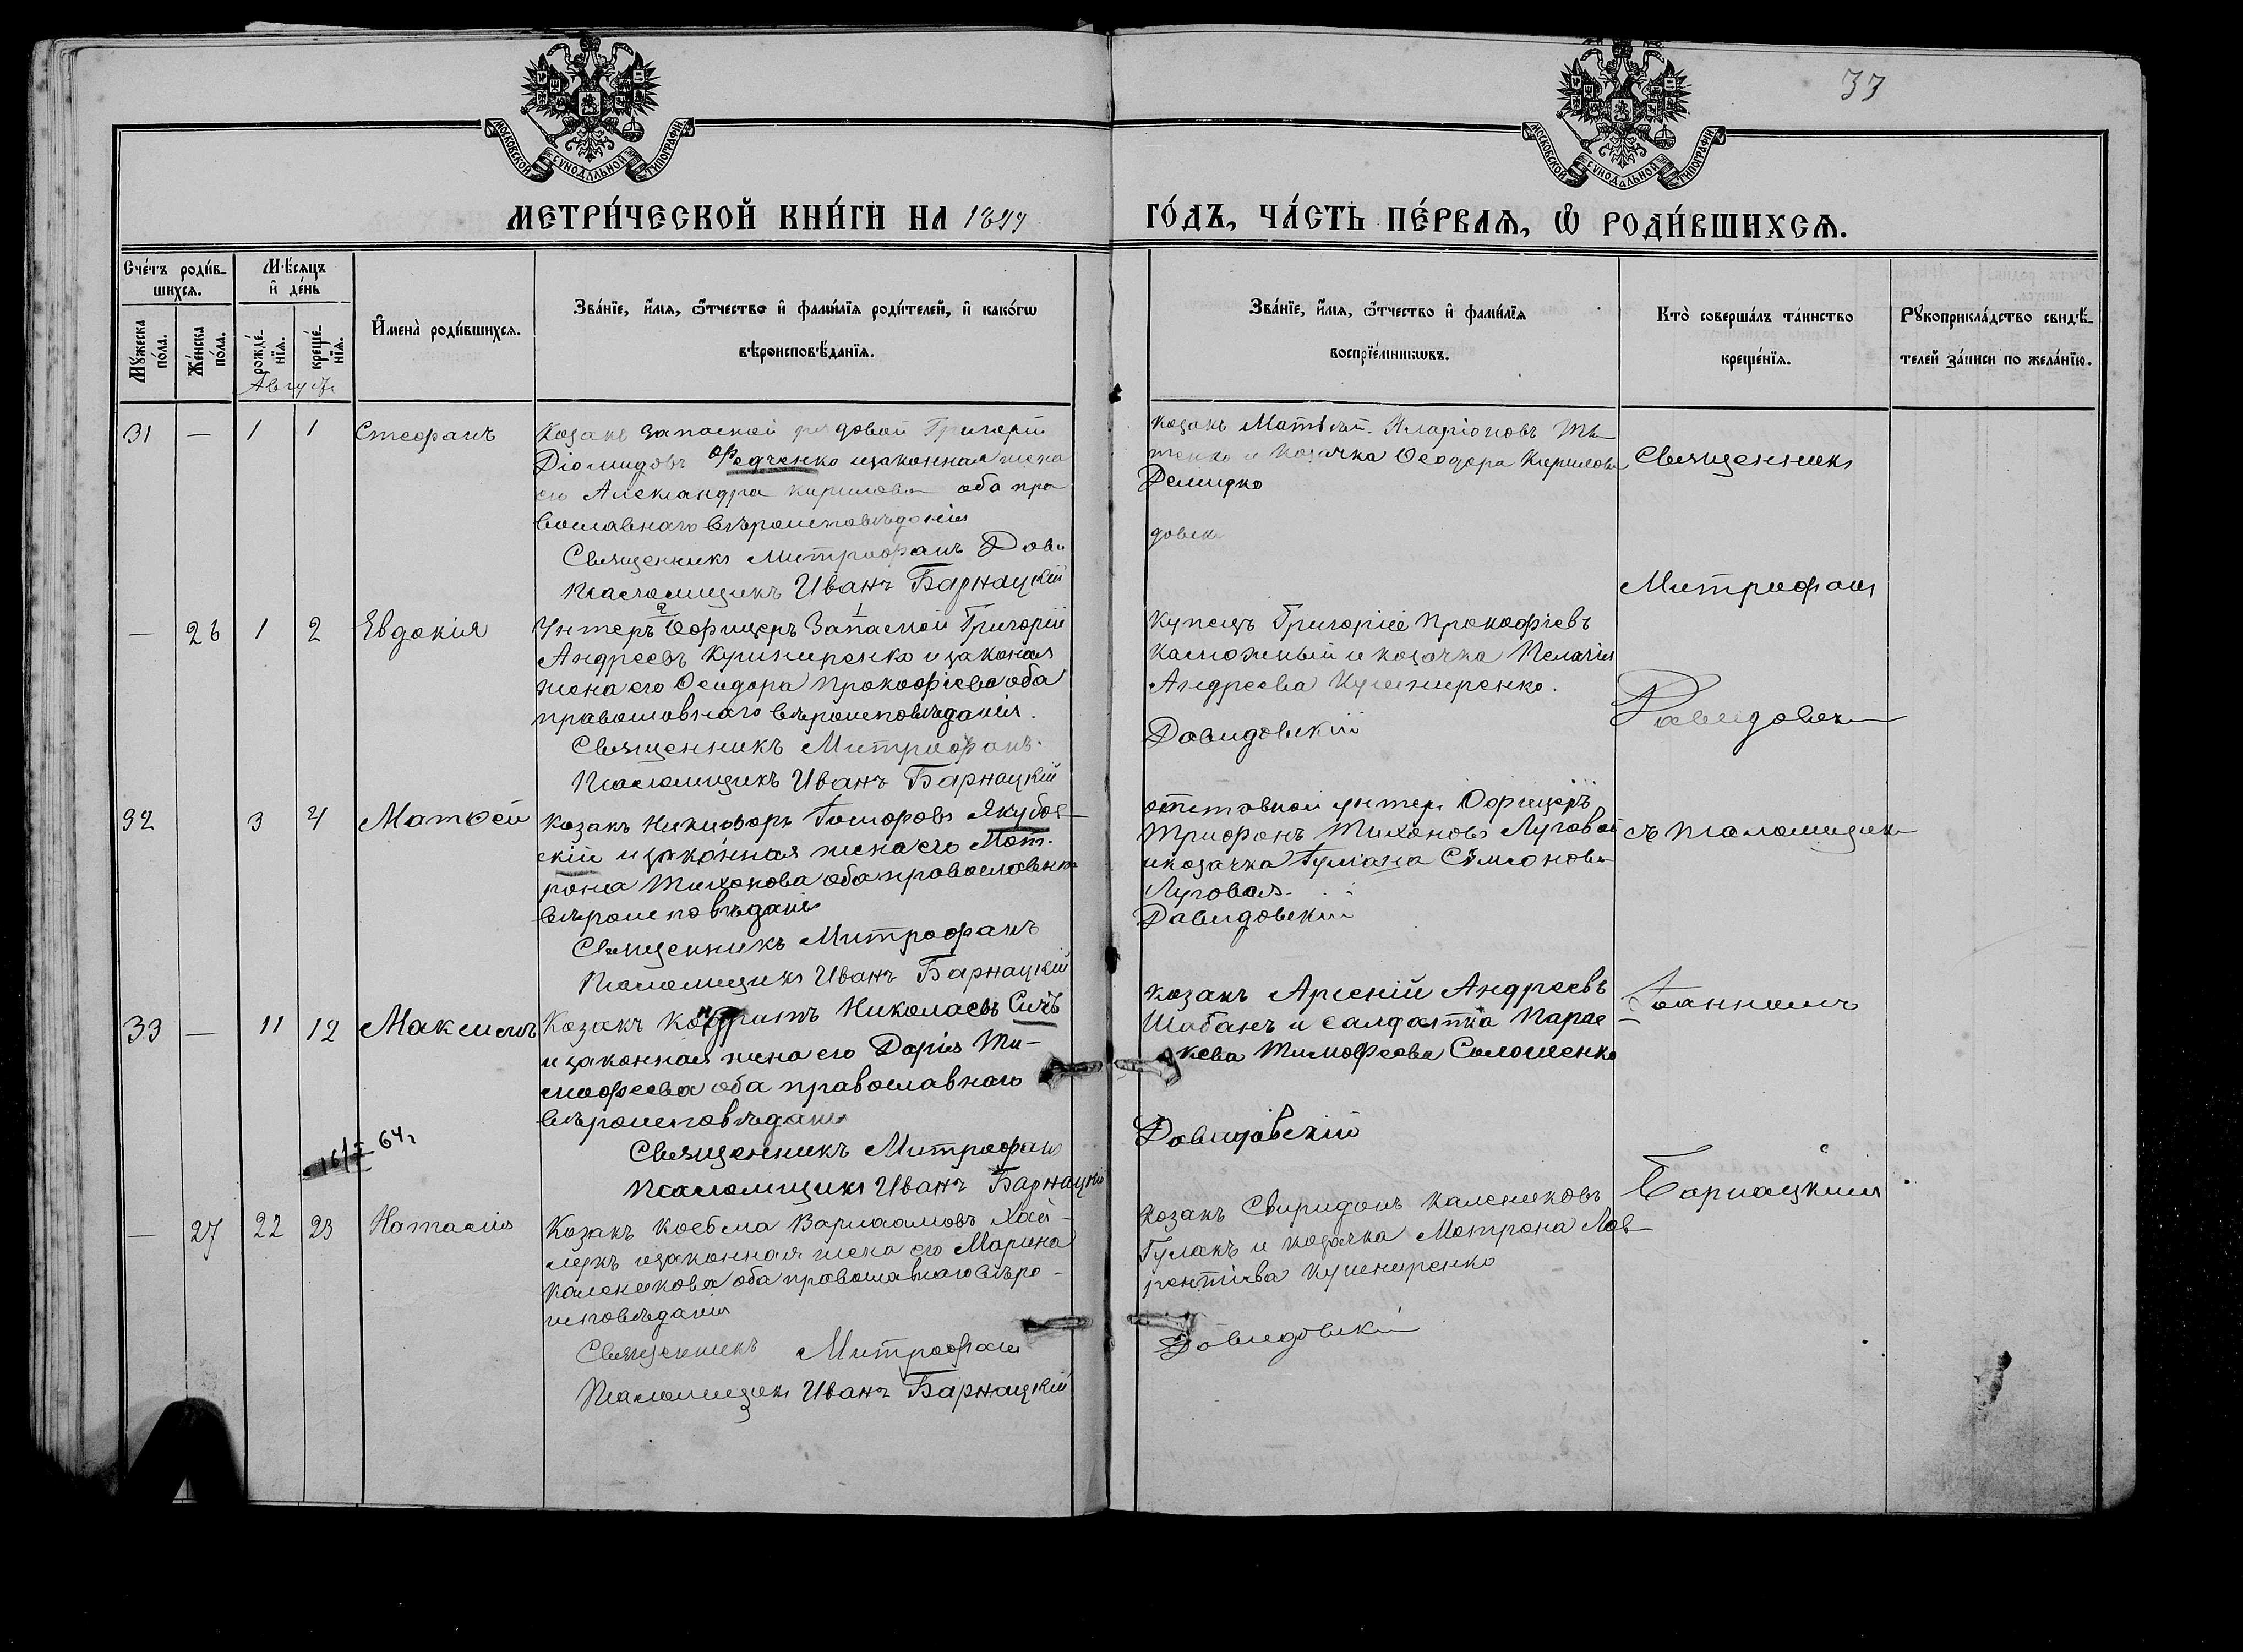 33
МОСКОВСКОЙ СѴНОДАЛЬНОЙ ТИПОГРАФІИ
МОСКОВСКОЙ СѴНОДАЛЬНОЙ ТИПОГРАФІИ
МЕТРИ́ЧЕСКОЙ КНИ́ГИ НА 1899
ГО́ДЪ, ЧА́СТЬ ПЕ́РВАѦ, Ѿ РОДИ́ВШИХСѦ.
Сче́тъ роди́в-
шихсѧ.
Мꙋ́жеска по́ла.
Же́нска по́ла.
Мѣ́сѧцъ
и҆ де́нь
рожде́-нїѧ.
креще́-нїѧ.
Августъ
И҆мена̀ роди́вшихсѧ.
Зва́нїе, и҆́мѧ, ѻ҆́тчество и҆ фами́лїѧ роди́телей, и҆ како́гѡ
вѣроисповѣ́данїѧ.
Зва́нїе, и҆́мѧ, ѻ҆́тчество и҆ фами́лїѧ
воспрїе́мникѡвъ.
Кто̀ соверша́лъ та́инство
креще́нїѧ.
Рꙋкоприкла́дство свидѣ́-
телей за́писи по жела́нїю.
31 — 1 1 Стефанъ
Козакъ запасной рядовой Григорій
Діомидовъ Федченко и законная жена
его Александра Кирилова оба пра
вославнаго вѣроисповѣданія
Священникъ Митрофанъ Дави
Псаломщикъ Иванъ Барнацкій
Козакъ Матѳей Иларіоновъ
и козачка Ѳеодора Кирилова
Демидко
довск
Священникъ
Митрофанъ
— 26 1 2 Евдокія
Унтеръ Офицеръ Запасной Григорій
Андреевъ Кушниренко и законая
жена его Ѳеодора Прокофіева оба
православнаго вѣроисповѣданія.
Священникъ Митрофанъ
Псаломщикъ Иванъ Барнацкій
Купецъ Григорій Прокофіевъ
и козачка Пелагія
Андреева Кушниренко.
Давидовскій
Давидовск
32 3 4 Матѳей
Козакъ Никифоръ Якубов-
скій и законная жена его Мот-
рона Тихонова оба православна
вѣроисповѣданія
Священникъ Митрофанъ
Псаломщикъ Иванъ Барнацкій
отставной унтеръ Офицеръ
Трифонъ Тихоновъ Луговой
и козачка Іуліана Сѵмеонова
Луговая.
Давидовскій
съ псаломщик
33 — 11 12 Максимъ
Козакъ Кондратъ Николаевъ Сичъ
и законная жена его Дарія Ти-
мофеева оба православнаго
вѣроисповѣданія
Священникъ Митрофанъ
Псаломщикъ Иванъ Барнацкій
Козакъ Арсеній Андреевъ
Шабанъ и салдатка Парас
кева Тимофеева Солошенко
Давидовскій
Іоанномъ
64 г
— 27 22 23 Наталія
Козакъ Косьма Варлаамовъ Хай-
и законная жена его Марина
Каленикова оба православнаго вѣро-
исповѣданія
Священникъ Митрофанъ
Псаломщикъ Иванъ Барнацкій
Козакъ Свиридонъ Калениковъ
Гулакъ и козачка Мотрона Лав-
рентіева Кушниренко
Давидовскі
Барнацкимъ